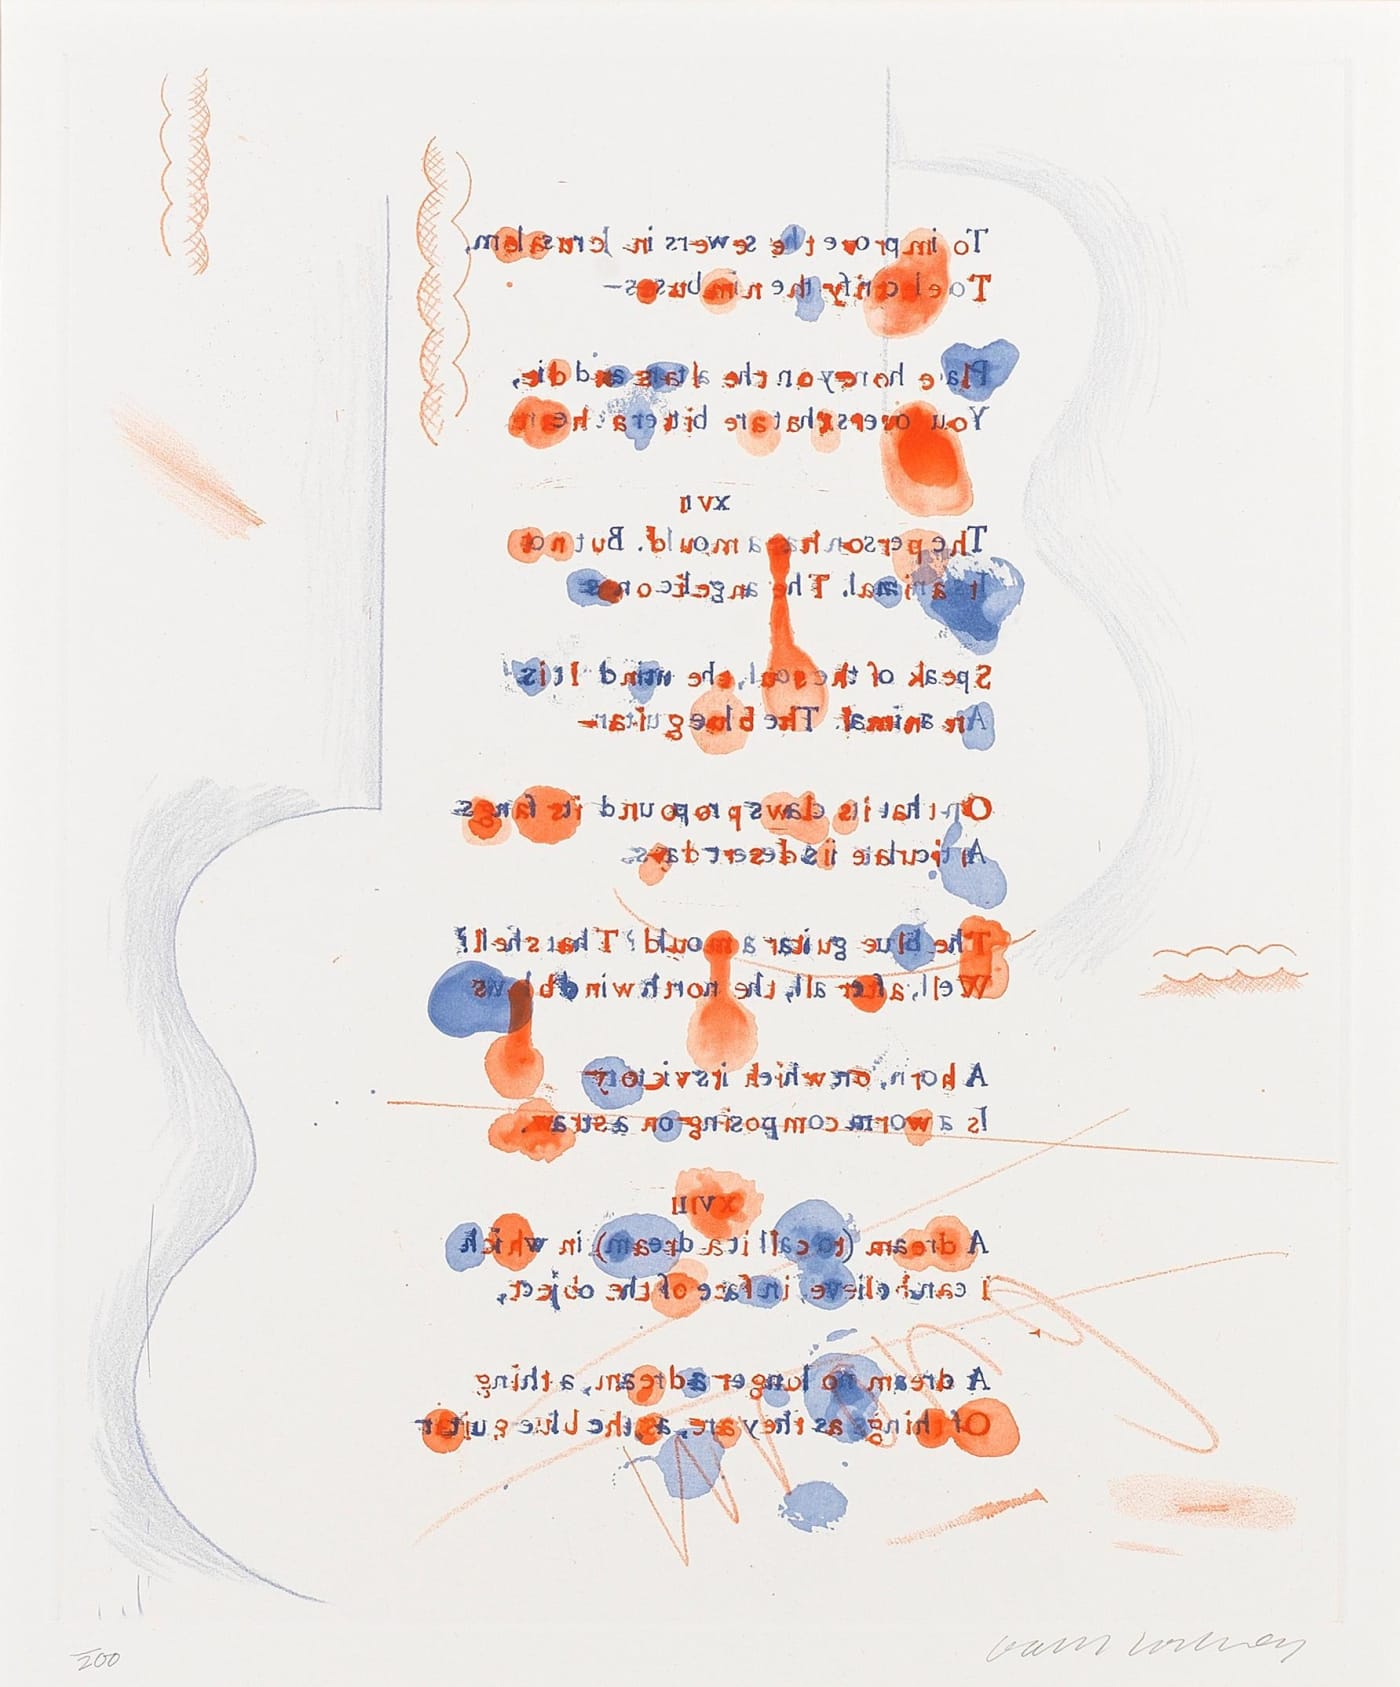 To improve the sewers in Jerusalem,
To electrify the nimbuses—
Place honey on the altars and die,
You lovers that are bitter at heart
XVII
The person has a mould. But not
Its animal. The angelic ones
Speak of the soul, the mind It is
An animal. The blue guitar—
On that its claws propound its fangs
Articulate its desert days.
The blue guitar a mould? That shell?
Well, after all, the north wind blows
A horn, on which its victory
Is a worm composing on a straw.
XVIII
A dream (to call it a dream) in which
I can believe, in face of the object,
A dream no longer a dream, a thing
Of things as they are, as, the blue guitar
/200